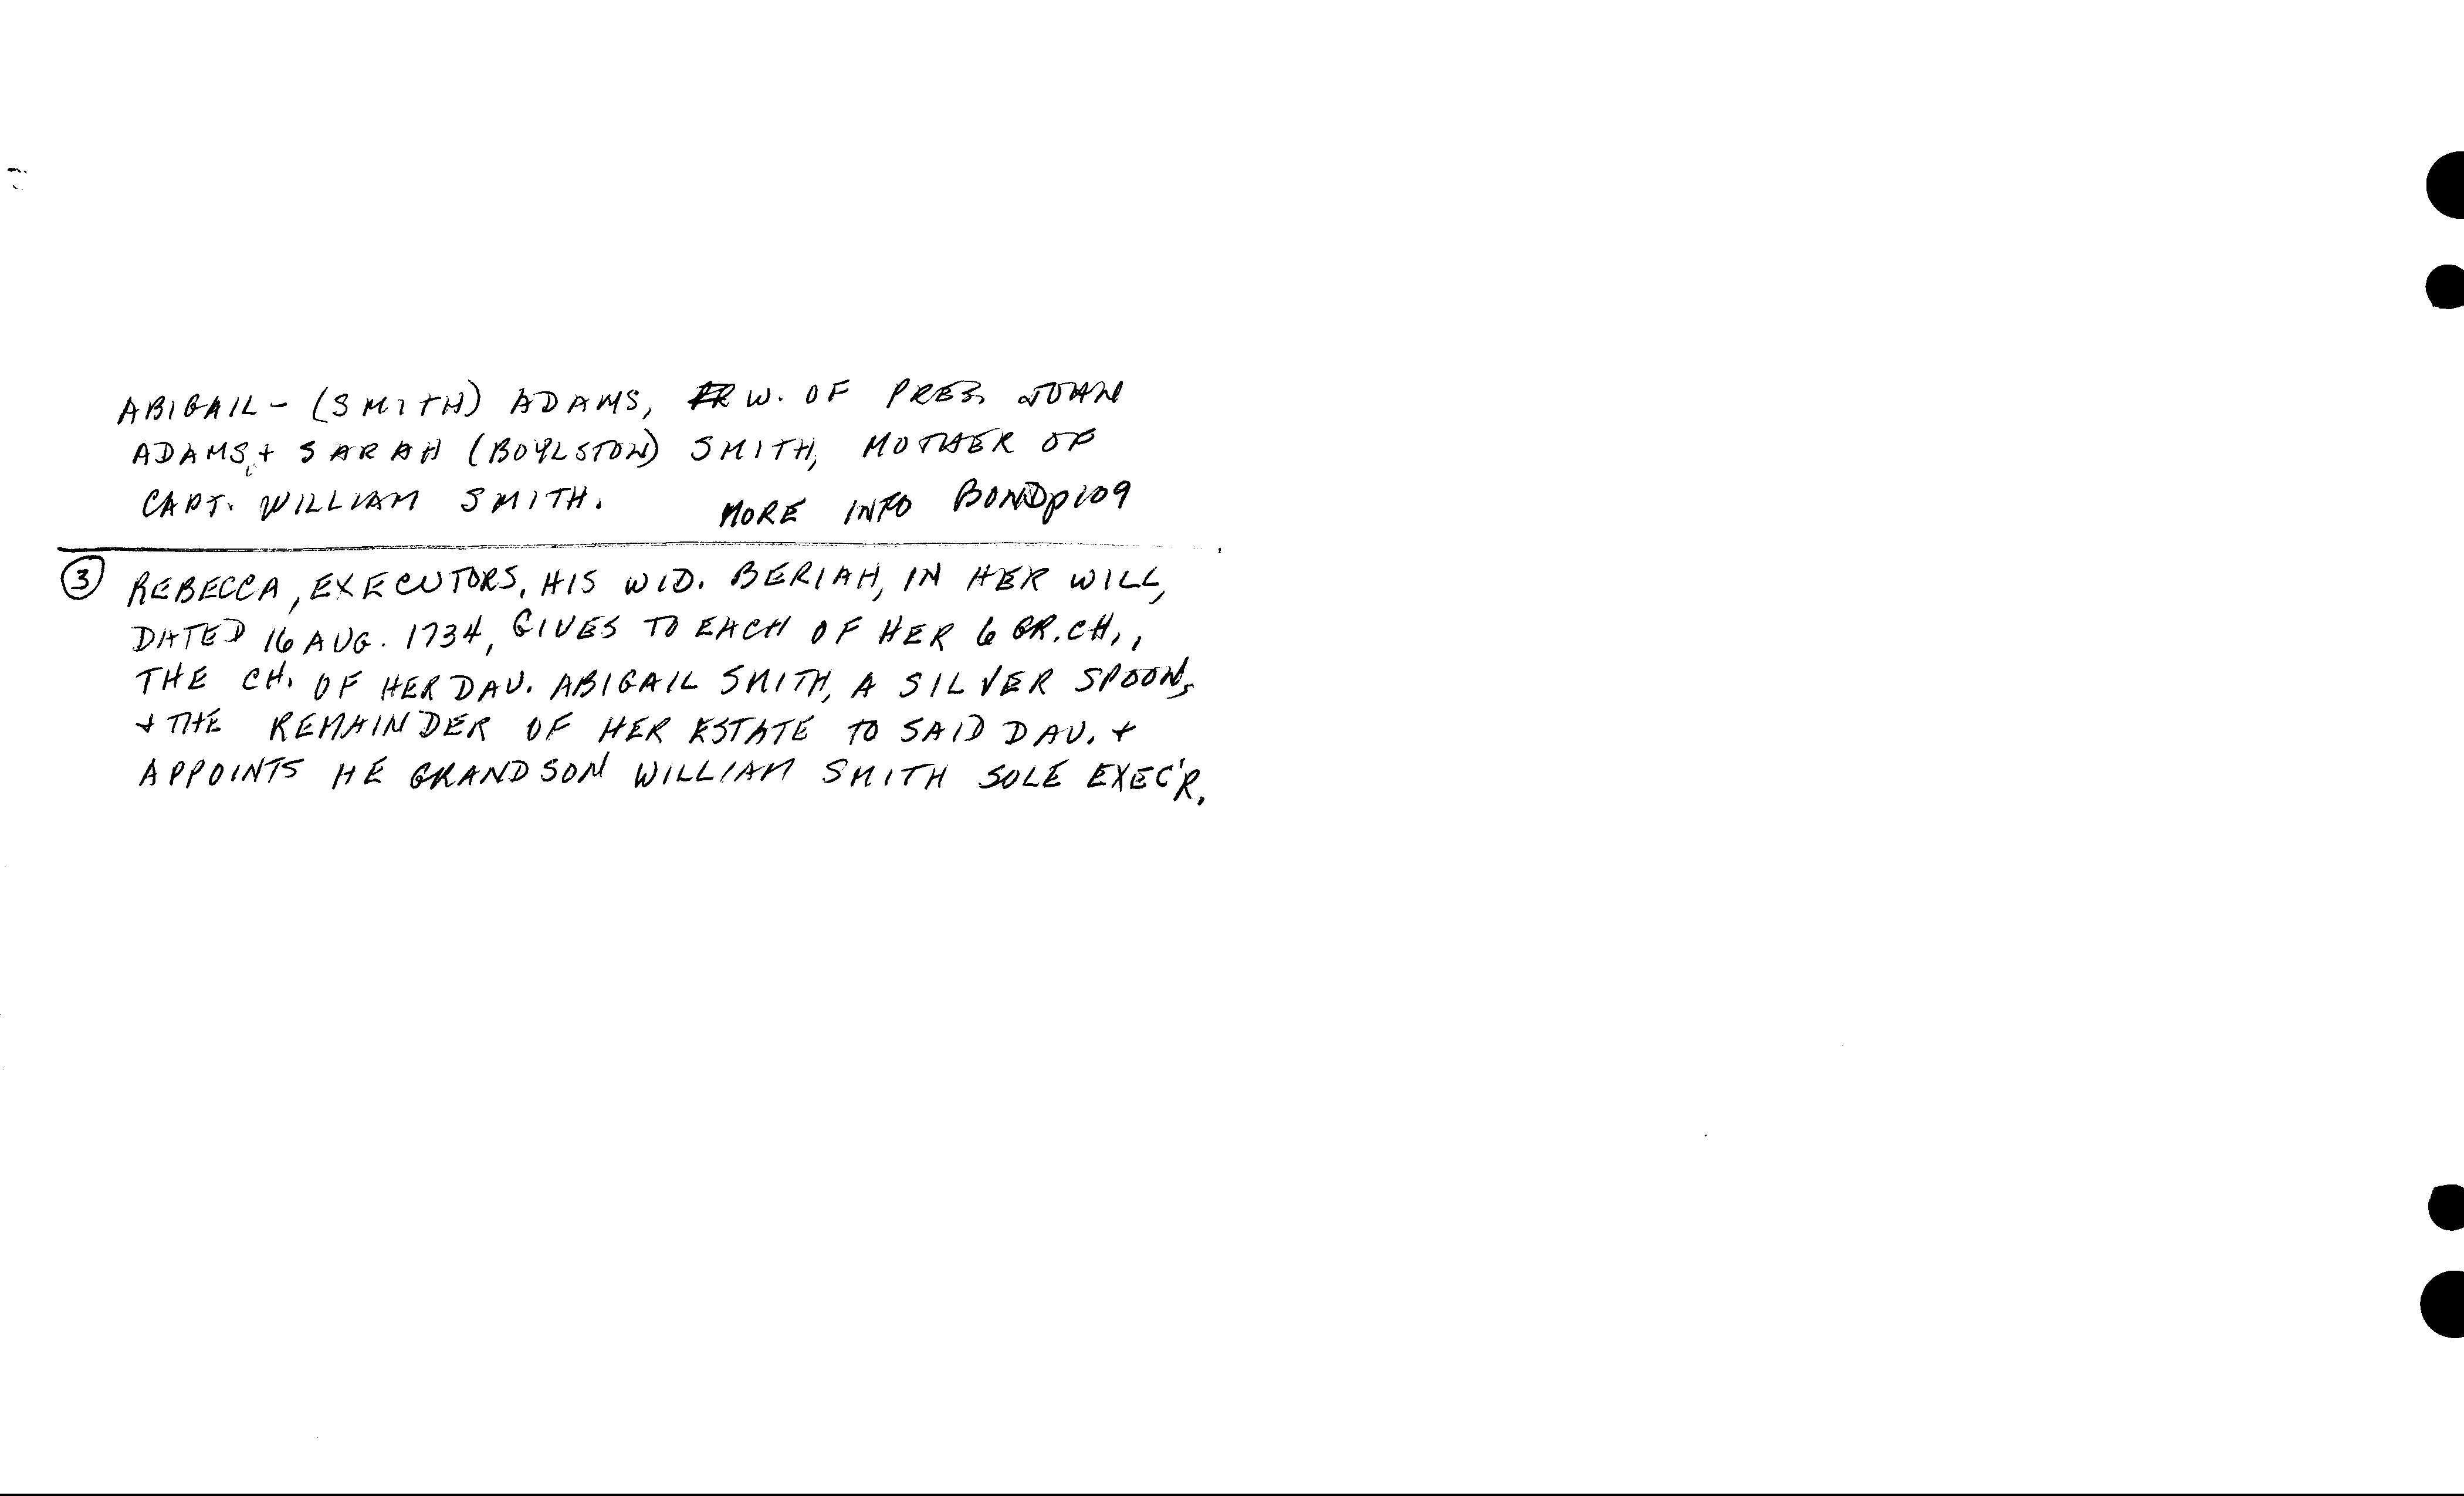 ABIGAIL - (SMITH) ADAMS, W. OF PRES. JOHN
ADAMS, + SARAH (BOYLSTON) SMITH, MOTHER OF
CAPT. WILLIAM SMITH. MORE INFO BOND p109
③ REBECCA, EXECUTORS. HIS WID. BERIAH, IN HER WILL,
DATED 16 AUG. 1734, GIVES TO EACH OF HER 6 GR.CH.,
THE CH. OF HER DAU. ABIGAIL SMITH, A SILVER SPOON,
+ THE REMAINDER OF HER ESTATE TO SAID DAU. +
APPOINTS HE GRANDSON WILLIAM SMITH SOLE EXEC'R.